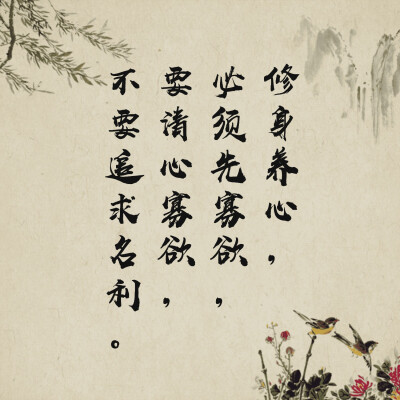 修身养心，
必须先寡欲，
要清心寡欲，
不要追求名利。